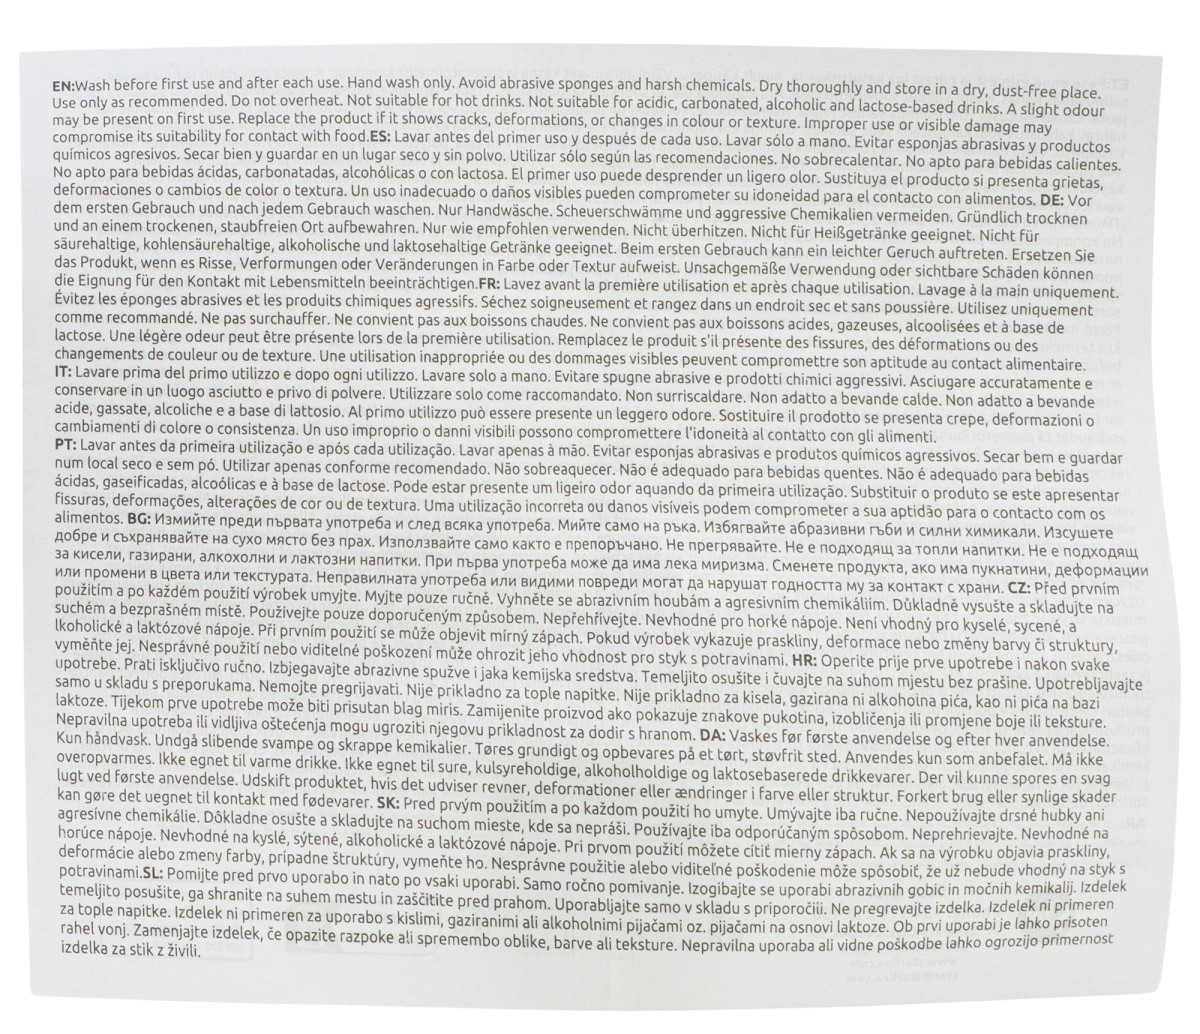 EN:Wash before first use and after each use. Hand wash only. Avoid abrasive sponges and harsh chemicals. Dry thoroughly and store in a dry, dust-free place.
Use only as recommended. Do not overheat. Not suitable for hot drinks. Not suitable for acidic, carbonated, alcoholic and lactose-based drinks. A slight odour
may be present on first use. Replace the product if it shows cracks, deformations, or changes in colour or texture. Improper use or visible damage may
compromise its suitability for contact with food.ES: Lavar antes del primer uso y después de cada uso. Lavar sólo a mano. Evitar esponjas abrasivas y productos
químicos agresivos. Secar bien y guardar en un lugar seco y sin polvo. Utilizar sólo según las recomendaciones. No sobrecalentar. No apto para bebidas calientes.
No apto para bebidas ácidas, carbonatadas, alcohólicas o con lactosa. El primer uso puede desprender un ligero olor. Sustituya el producto si presenta grietas,
deformaciones o cambios de color o textura. Un uso inadecuado o daños visibles pueden comprometer su idoneidad para el contacto con alimentos. DE: Vor
dem ersten Gebrauch und nach jedem Gebrauch waschen. Nur Handwäsche. Scheuerschwämme und aggressive Chemikalien vermeiden. Gründlich trocknen
und an einem trockenen, staubfreien Ort aufbewahren. Nur wie empfohlen verwenden. Nicht überhitzen. Nicht für Heißgetränke geeignet. Nicht für
säurehaltige, kohlensäurehaltige, alkoholische und laktosehaltige Getränke geeignet. Beim ersten Gebrauch kann ein leichter Geruch auftreten. Ersetzen Sie
das Produkt, wenn es Risse, Verformungen oder Veränderungen in Farbe oder Textur aufweist. Unsachgemäße Verwendung oder sichtbare Schäden können
die Eignung für den Kontakt mit Lebensmitteln beeinträchtigen.FR: Lavez avant la première utilisation et après chaque utilisation. Lavage à la main uniquement.
Évitez les éponges abrasives et les produits chimiques agressifs. Séchez soigneusement et rangez dans un endroit sec et sans poussière. Utilisez uniquement
comme recommandé. Ne pas surchauffer. Ne convient pas aux boissons chaudes. Ne convient pas aux boissons acides, gazeuses, alcoolisées et à base de
lactose. Une légère odeur peut être présente lors de la première utilisation. Remplacez le produit s'il présente des fissures, des déformations ou des
changements de couleur ou de texture. Une utilisation inappropriée ou des dommages visibles peuvent compromettre son aptitude au contact alimentaire.
IT: Lavare prima del primo utilizzo e dopo ogni utilizzo. Lavare solo a mano. Evitare spugne abrasive e prodotti chimici aggressivi. Asciugare accuratamente e
conservare in un luogo asciutto e privo di polvere. Utilizzare solo come raccomandato. Non surriscaldare. Non adatto a bevande calde. Non adatto a bevande
acide, gassate, alcoliche e a base di lattosio. Al primo utilizzo può essere presente un leggero odore. Sostituire il prodotto se presenta crepe, deformazioni o
cambiamenti di colore o consistenza. Un uso improprio o danni visibili possono compromettere l'idoneità al contatto con gli alimenti.
PT: Lavar antes da primeira utilização e após cada utilização. Lavar apenas à mão. Evitar esponjas abrasivas e produtos químicos agressivos. Secar bem e guardar
num local seco e sem pó. Utilizar apenas conforme recomendado. Não sobreaquecer. Não é adequado para bebidas quentes. Não é adequado para bebidas
ácidas, gaseificadas, alcoólicas e à base de lactose. Pode estar presente um ligeiro odor aquando da primeira utilização. Substituir o produto se este apresentar
fissuras, deformações, alterações de cor ou de textura. Uma utilização incorreta ou danos visíveis podem comprometer a sua aptidão para o contacto com os
alimentos. BG: Измийте преди първата употреба и след всяка употреба. Мийте само на ръка. Избягвайте абразивни гъби и силни химикали. Изсушете
добре и съхранявайте на сухо място без прах. Използвайте само както е препоръчано. Не прегрявайте. Не е подходящ за топли напитки. Не е подходящ
за кисели, газирани, алкохолни и лактозни напитки. При първа употреба може да има лека миризма. Сменете продукта, ако има пукнатини, деформации
или промени в цвета или текстурата. Неправилната употреба или видими повреди могат да нарушат годността му за контакт с храни. CZ: Před prvním
použitím a po každém použití výrobek umyjte. Myjte pouze ručně. Vyhněte se abrazivním houbám a agresivním chemikáliím. Důkladně vysušte a skladujte na
suchém a bezprašném místě. Používejte pouze doporučeným způsobem. Nepřehřívejte. Nevhodné pro horké nápoje. Není vhodný pro kyselé, sycené, a
lkoholické a laktózové nápoje. Při prvním použití se může objevit mírný zápach. Pokud výrobek vykazuje praskliny, deformace nebo změny barvy či struktury,
vyměňte jej. Nesprávné použití nebo viditelné poškození může ohrozit jeho vhodnost pro styk s potravinami. HR: Operite prije prve upotrebe i nakon svake
upotrebe. Prati isključivo ručno. Izbjegavajte abrazivne spužve i jaka kemijska sredstva. Temeljito osušite i čuvajte na suhom mjestu bez prašine. Upotrebljavajte
samo u skladu s preporukama. Nemojte pregrijavati. Nije prikladno za tople napitke. Nije prikladno za kisela, gazirana ni alkohoina pića, kao ni pića na bazi
laktoze. Tijekom prve upotrebe može biti prisutan blag miris. Zamijenite proizvod ako pokazuje znakove pukotina, izobličenja ili promjene boje ili teksture.
Nepravilna upotreba ili vidljiva oštećenja mogu ugroziti njegovu prikladnost za dodir s hranom. DA: Vaskes før første anvendelse og efter hver anvendelse.
Kun håndvask. Undgå slibende svampe og skrappe kemikalier. Tøres grundigt og opbevares på et tørt, støvfrit sted. Anvendes kun som anbefalet. Må ikke
overopvarmes. Ikke egnet til varme drikke. Ikke egnet til sure, kulsyreholdige, alkoholholdige og laktosebaserede drikkevarer. Der vil kunne spores en svag
lugt ved første anvendelse. Udskift produktet, hvis det udviser revner, deformationer eller ændringer i farve eller struktur. Forkert brug eller synlige skader
kan gøre det uegnet til kontakt med fødevarer. SK: Pred prvým použitím a po každom použití ho umyte. Umývajte iba ručne. Nepoužívajte drsné hubky ani
agresívne chemikálie. Dôkladne osušte a skladujte na suchom mieste, kde sa nepráši. Používajte iba odporúčaným spôsobom. Neprehrievajte. Nevhodné na
horúce nápoje. Nevhodné na kyslé, sýtené, alkoholické a laktózové nápoje. Pri prvom použití môžete cítiť mierny zápach. Ak sa na výrobku objavia praskliny,
deformácie alebo zmeny farby, prípadne štruktúry, vymeňte ho. Nesprávne použitie alebo viditeľné poškodenie môže spôsobiť, že už nebude vhodný na styk s
potravinami.SL: Pomijte pred prvo uporabo in nato po vsaki uporabi. Samo ročno pomivanje. Izogibajte se uporabi abrazivnih gobic in močnih kemikalij. Izdelek
temeljito posušite, ga shranite na suhem mestu in zaščitite pred prahom. Uporabljajte samo v skladu s priporočiii. Ne pregrevajte izdelka. Izdelek ni primeren
za tople napitke. Izdelek ni primeren za uporabo s kislimi, gaziranimi ali alkoholnimi pijačami oz. pijačami na osnovi laktoze. Ob prvi uporabi je lahko prisoten
rahel vonj. Zamenjajte izdelek, če opazite razpoke ali spremembo oblike, barve ali teksture. Nepravilna uporaba ali vidne poškodbe lahko ogrozijo primernost
izdelka za stik z živili.